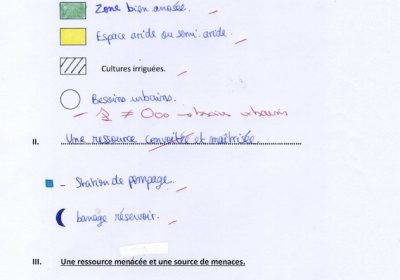 Zone bien arrosée.
Espace aride ou semi aride.
Cultures irriguées.
Besoins urbains.
≠ besoins urbains
II. Une ressource convoitée et maîtrisée.
- Station de pompage.
barrage réservoir.
III. Une ressource menacée et une source de menaces.